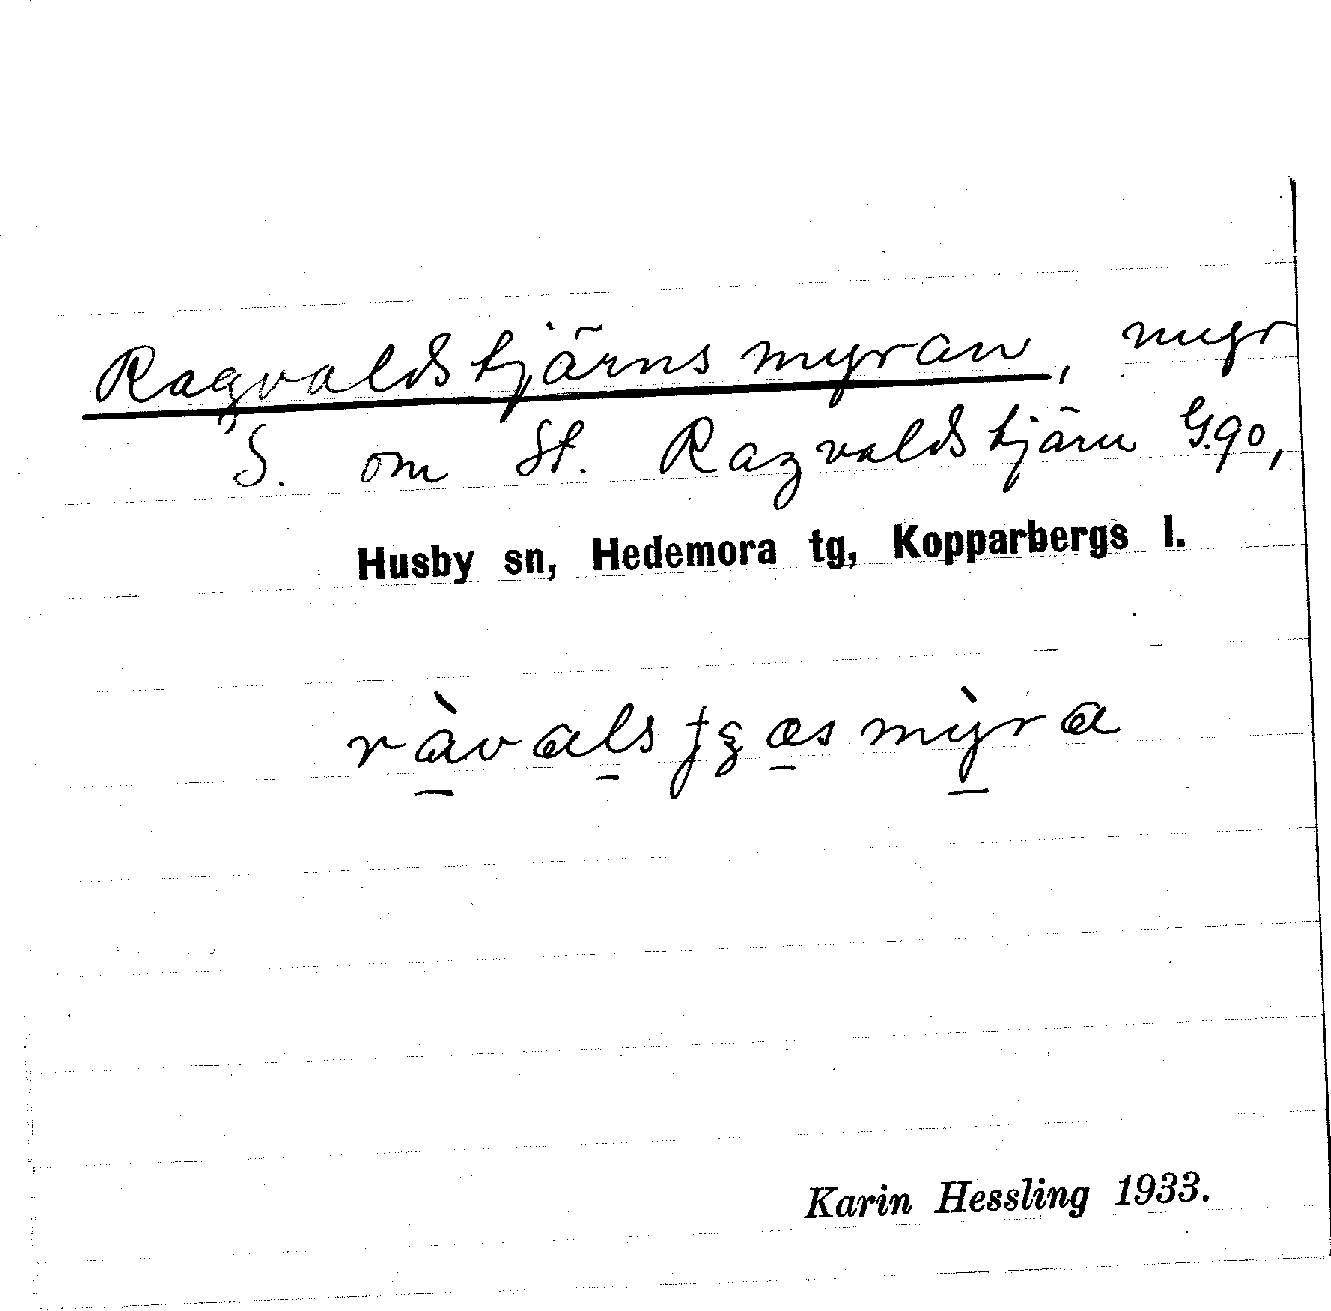 Ragvaldstjärnsmyran, myr
S. om St. Ragvaldstjärn G.90,
Husby sn, Hedemora tg, Kopparbergs l.
Karin Hessling 1933.